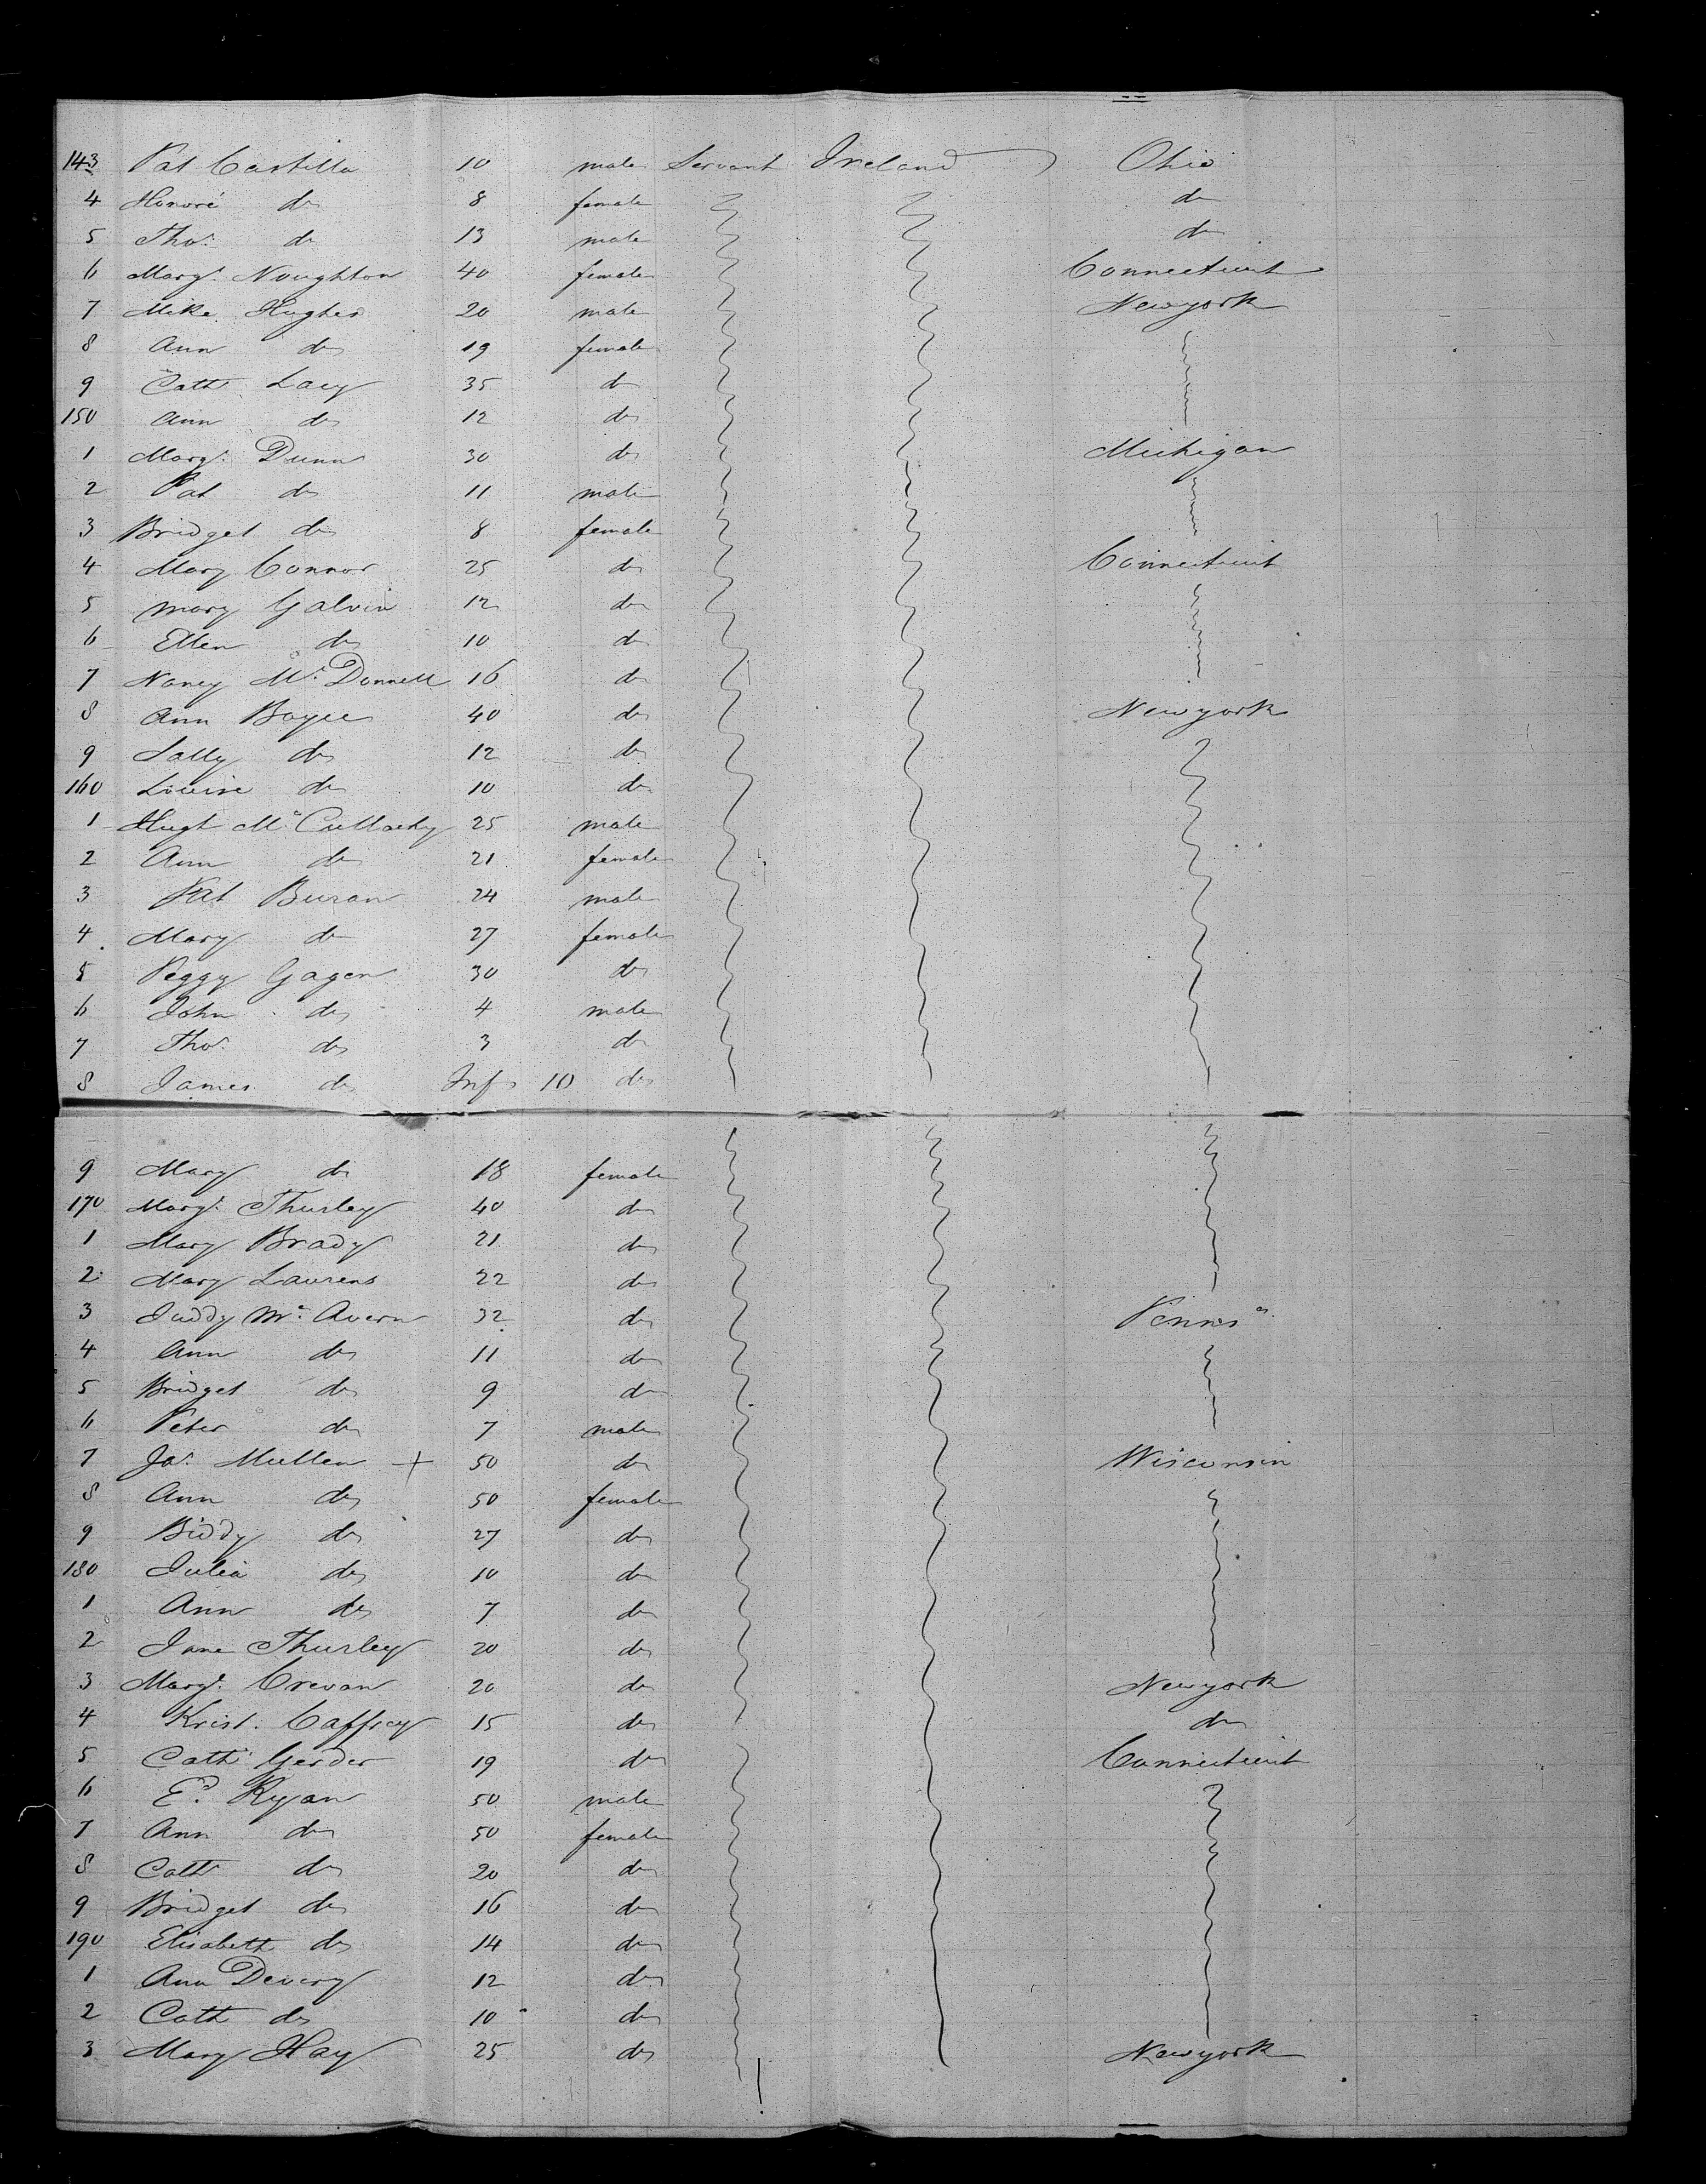 143 Pat Castilla 10 male Servant Ireland Ohio
4 Honoré do 8 female do
5 Thos. do 13 male do
6 Margt. Noughton 40 female Connecticut
7 Mike Hughes 20 male Newyork
8 Ann do 19 female
9 Cath Lacy 35 do
150 Ann do 12 do
1 Margt. Dunn 30 do Michigan
2 Pat do 11 male
3 Bridget do 8 female
4 Mary Connor 25 do Connecticut
5 Mary Galvin 12 do
6 Ellen do 10 do
7 Nancy Mc. Donnell 16 do
8 Ann Boyce 40 do Newyork
9 Sally do 12 do
160 Louise do 10 do
1 Hugh Mc Cullachy 25 male
2 Ann do 21 female
3 Pat Buran 24 male
4 Mary do 27 female
5 Peggy Gagen 30 do
6 John do 4 male
7 Thos. do 3 do
8 James do Inf 10 do
9 Mary do 18 female
170 Margt. Thurley 40 do
1 Mary Brady 21 do
2 Mary Laurens 22 do
3 Juddy Mc. Avern 32 do Penns a
4 Ann do 11 do
5 Bridget do 9 do
6 Peter do 7 male
7 Jas. Mullen + 50 do Wisconsin
8 Ann do 50 female
9 Biddy do 27 do
180 Julia do 10 do
1 Ann do 7 do
2 Jane Thurley 20 do
3 Margt. Crevan 20 do Newyork
4 Krist. Caffrey 15 do do
5 Cath Gerder 19 do Connecticut
6 Ed. Ryan 50 male
7 Ann do 50 female
8 Cath do 20 do
9 Bridget do 16 do
190 Elisabeth do 14 do
1 Ann Devery 12 do
2 Cath do 10 do
3 Mary Hay 25 do Newyork